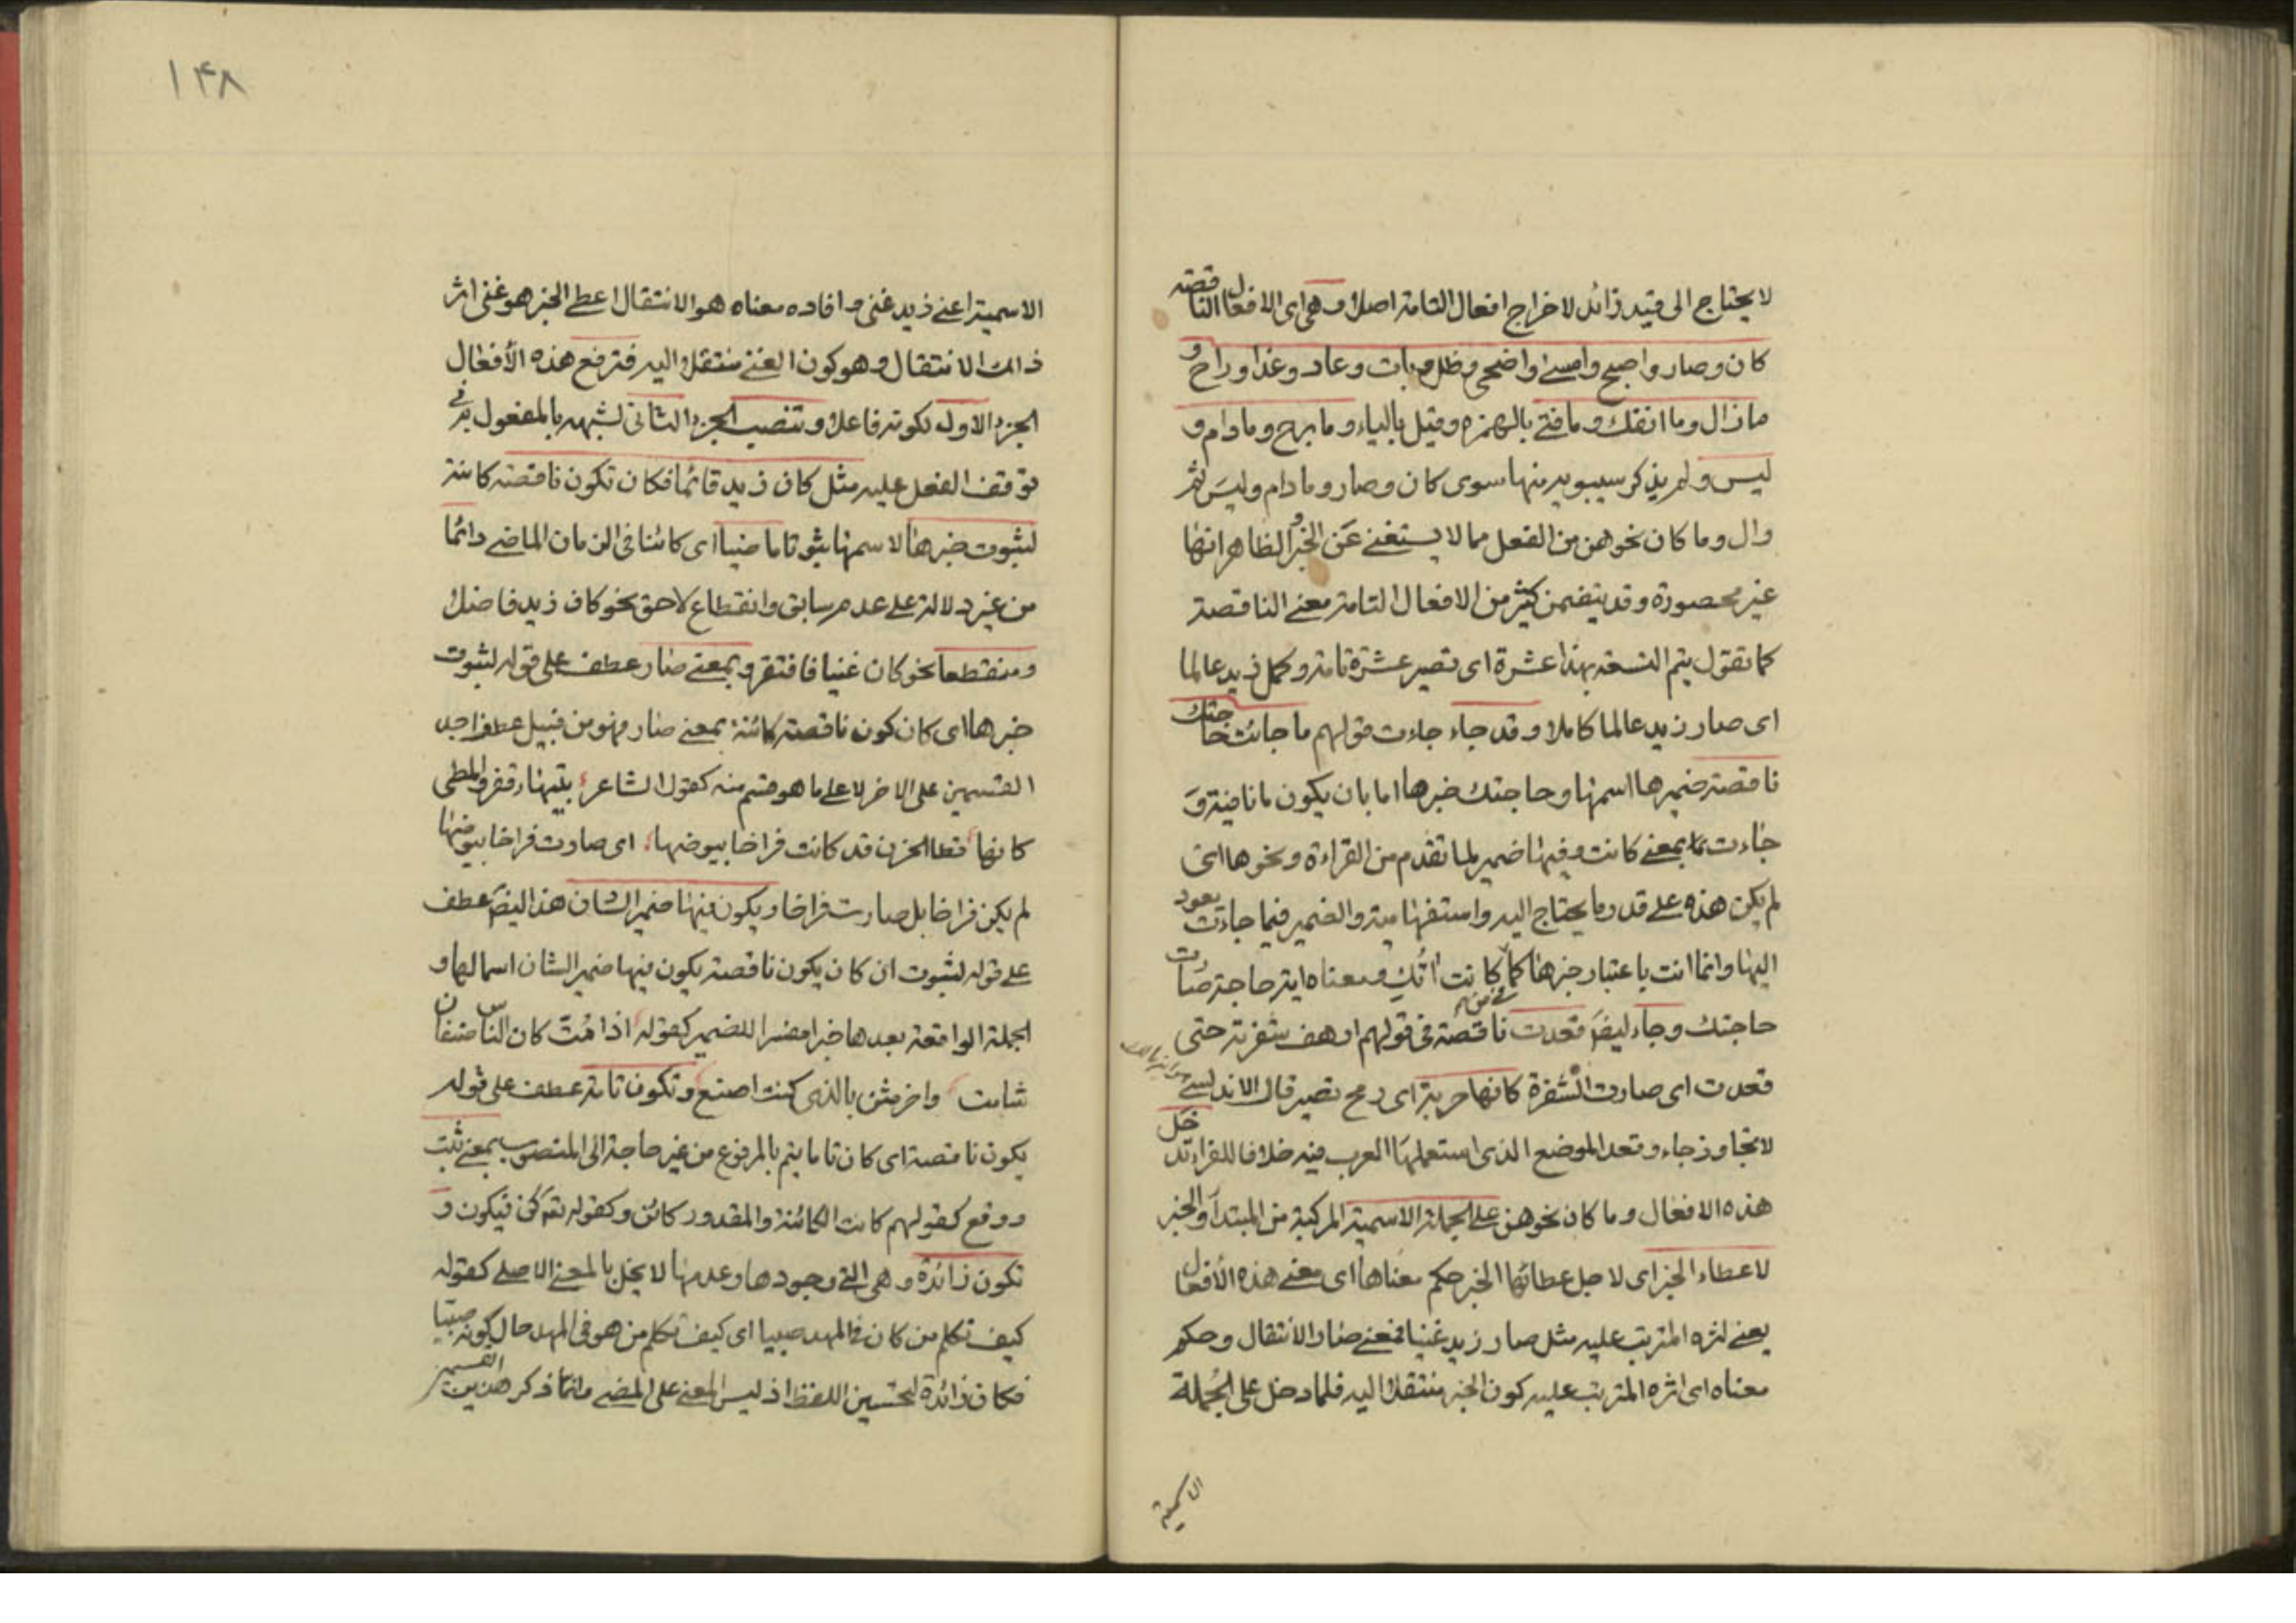 لا يحتاج الى قيد زائد لاخراج افعال التامة اصلا وهى اى الافعال الناقصه
كان وصار واصبح وامسى واضحى وظل وبات وعاد وغدا وراح و
مازال وما انفك وما فتئ بالهمزه وقيل بالياء وما برح وما دام و
ليس ولم يذكر سيبويه منها سوى كان وصار وما دام وليس ثم
وال وما كان نحوهن من الفعل مما لا يستغنے عن الخبر والظاهر انها
غير محصورة وقد يتضمن كثير من الافعال التامة معنے الناقصة
كما تقول يتم التسعة بهذا عشرة اى تصير عشرة تامة وكمل زيد عالما
اى صار زيد عالما كاملا وقد جاء جاءت قولهم ما جائت حاجتك
ناقصة ضميرها اسمها وحاجتك خبرها اما بان يكون ما نافية و
جاءت بمعنے كانت وفيها ضمير لما تقدم من القراءة ونحوها اى
لم يكن هذه على قدر ما يحتاج اليه واستفهامية والضمير فيما جاءت يعود
اليها وانما انت باعتبار خبرها كما كانت امك ومعناه اية حاجة صارت
حاجتك وجاء ايضا قعدت ناقصة فى قولهم ارهف شفرته حتى
قعدت اى صارت الشفرة كانها حربة اى رمح تصير قال الاندلسے
لا تجاوز جاء وقعد الموضع الذى استعملها العرب فيه خلافا للفراء تدخل
هذه الافعال وما كان نحوهن على الجملة الاسمية المركبة من المبتدأ والخبر
لاعطاء الخبر اى لاجل عطائها الخبر حكم معناها اى معنے هذه الافعال
يعنے اثره المترتب عليه مثل صار زيد غنيا فمعنے صار الانتقال وحكم
معناه اى اثره المترتب عليه كون الخبر منتقلا اليه فلما دخل على الجملة
الاسمية
١٤٨
الاسمية اعنے زيد غنى وافاده معناه هو الانتقال اعطى الخبر هو غنى اثر
ذالك الانتقال وهو كون الغنے منتقلا اليه فترفع هذه الافعال
الجزء الاول لكونه فاعلا وتنصب الجزء الثانى لشبهه بالمفعول به فى
توقف الفعل عليه مثل كان زيد قائما فكان تكون ناقصة كائنة
لثبوت خبرها لاسمها ثبوتا ماضيا اى كائنا فى الزمان الماضے دائما
من غير دلالة على عدم سابق وانقطاع لاحق نحو كان زيد فاضلا
ومنقطعا نحو كان غنيا فافتقر وبمعنے صار عطف على قوله لثبوت
خبرها اى كان كون ناقصة كائنة بمعنے صار وهو من قبيل عطف احد
القسمين على الاخر لا على ما هو قسم منه كقول الشاعر بتيهاء قفر والمطى
كانها قطا الحزن قد كانت فراخا بيوضها اى صارت فراخا بيوضها
لم يكن فراخا بل صارت فراخا ويكون فيها ضمير الشان هذا ايضا عطف
على قوله لثبوت ان كان يكون ناقصة يكون فيها ضمير الشان اسما لها و
الجملة الواقعة بعدها خبرا مفسرا للضمير كقوله اذا مت كان الناس صنفان
شامت واخر مثن بالذى كنت اصنع وتكون تامة عطف على قوله
يكون ناقصة اى كان تاما يتم بالمرفوع من غير حاجة الى المنصوب بمعنے ثبت
ووقع كقولهم كانت الكائنة والمقدور كائن وكقوله تعه كن فيكون و
تكون زائدة وهى التے وجودها وعدمها لا يخل بالمعنے الاصلے كقوله
كيف تكلم من كان فى المهد صبيا اى كيف تكلم من هو فى المهد حال كونه صبيا
فكان زائدة لتحسين اللفظ اذ ليس المعنے على المضے وانما ذكر هذين القسمين